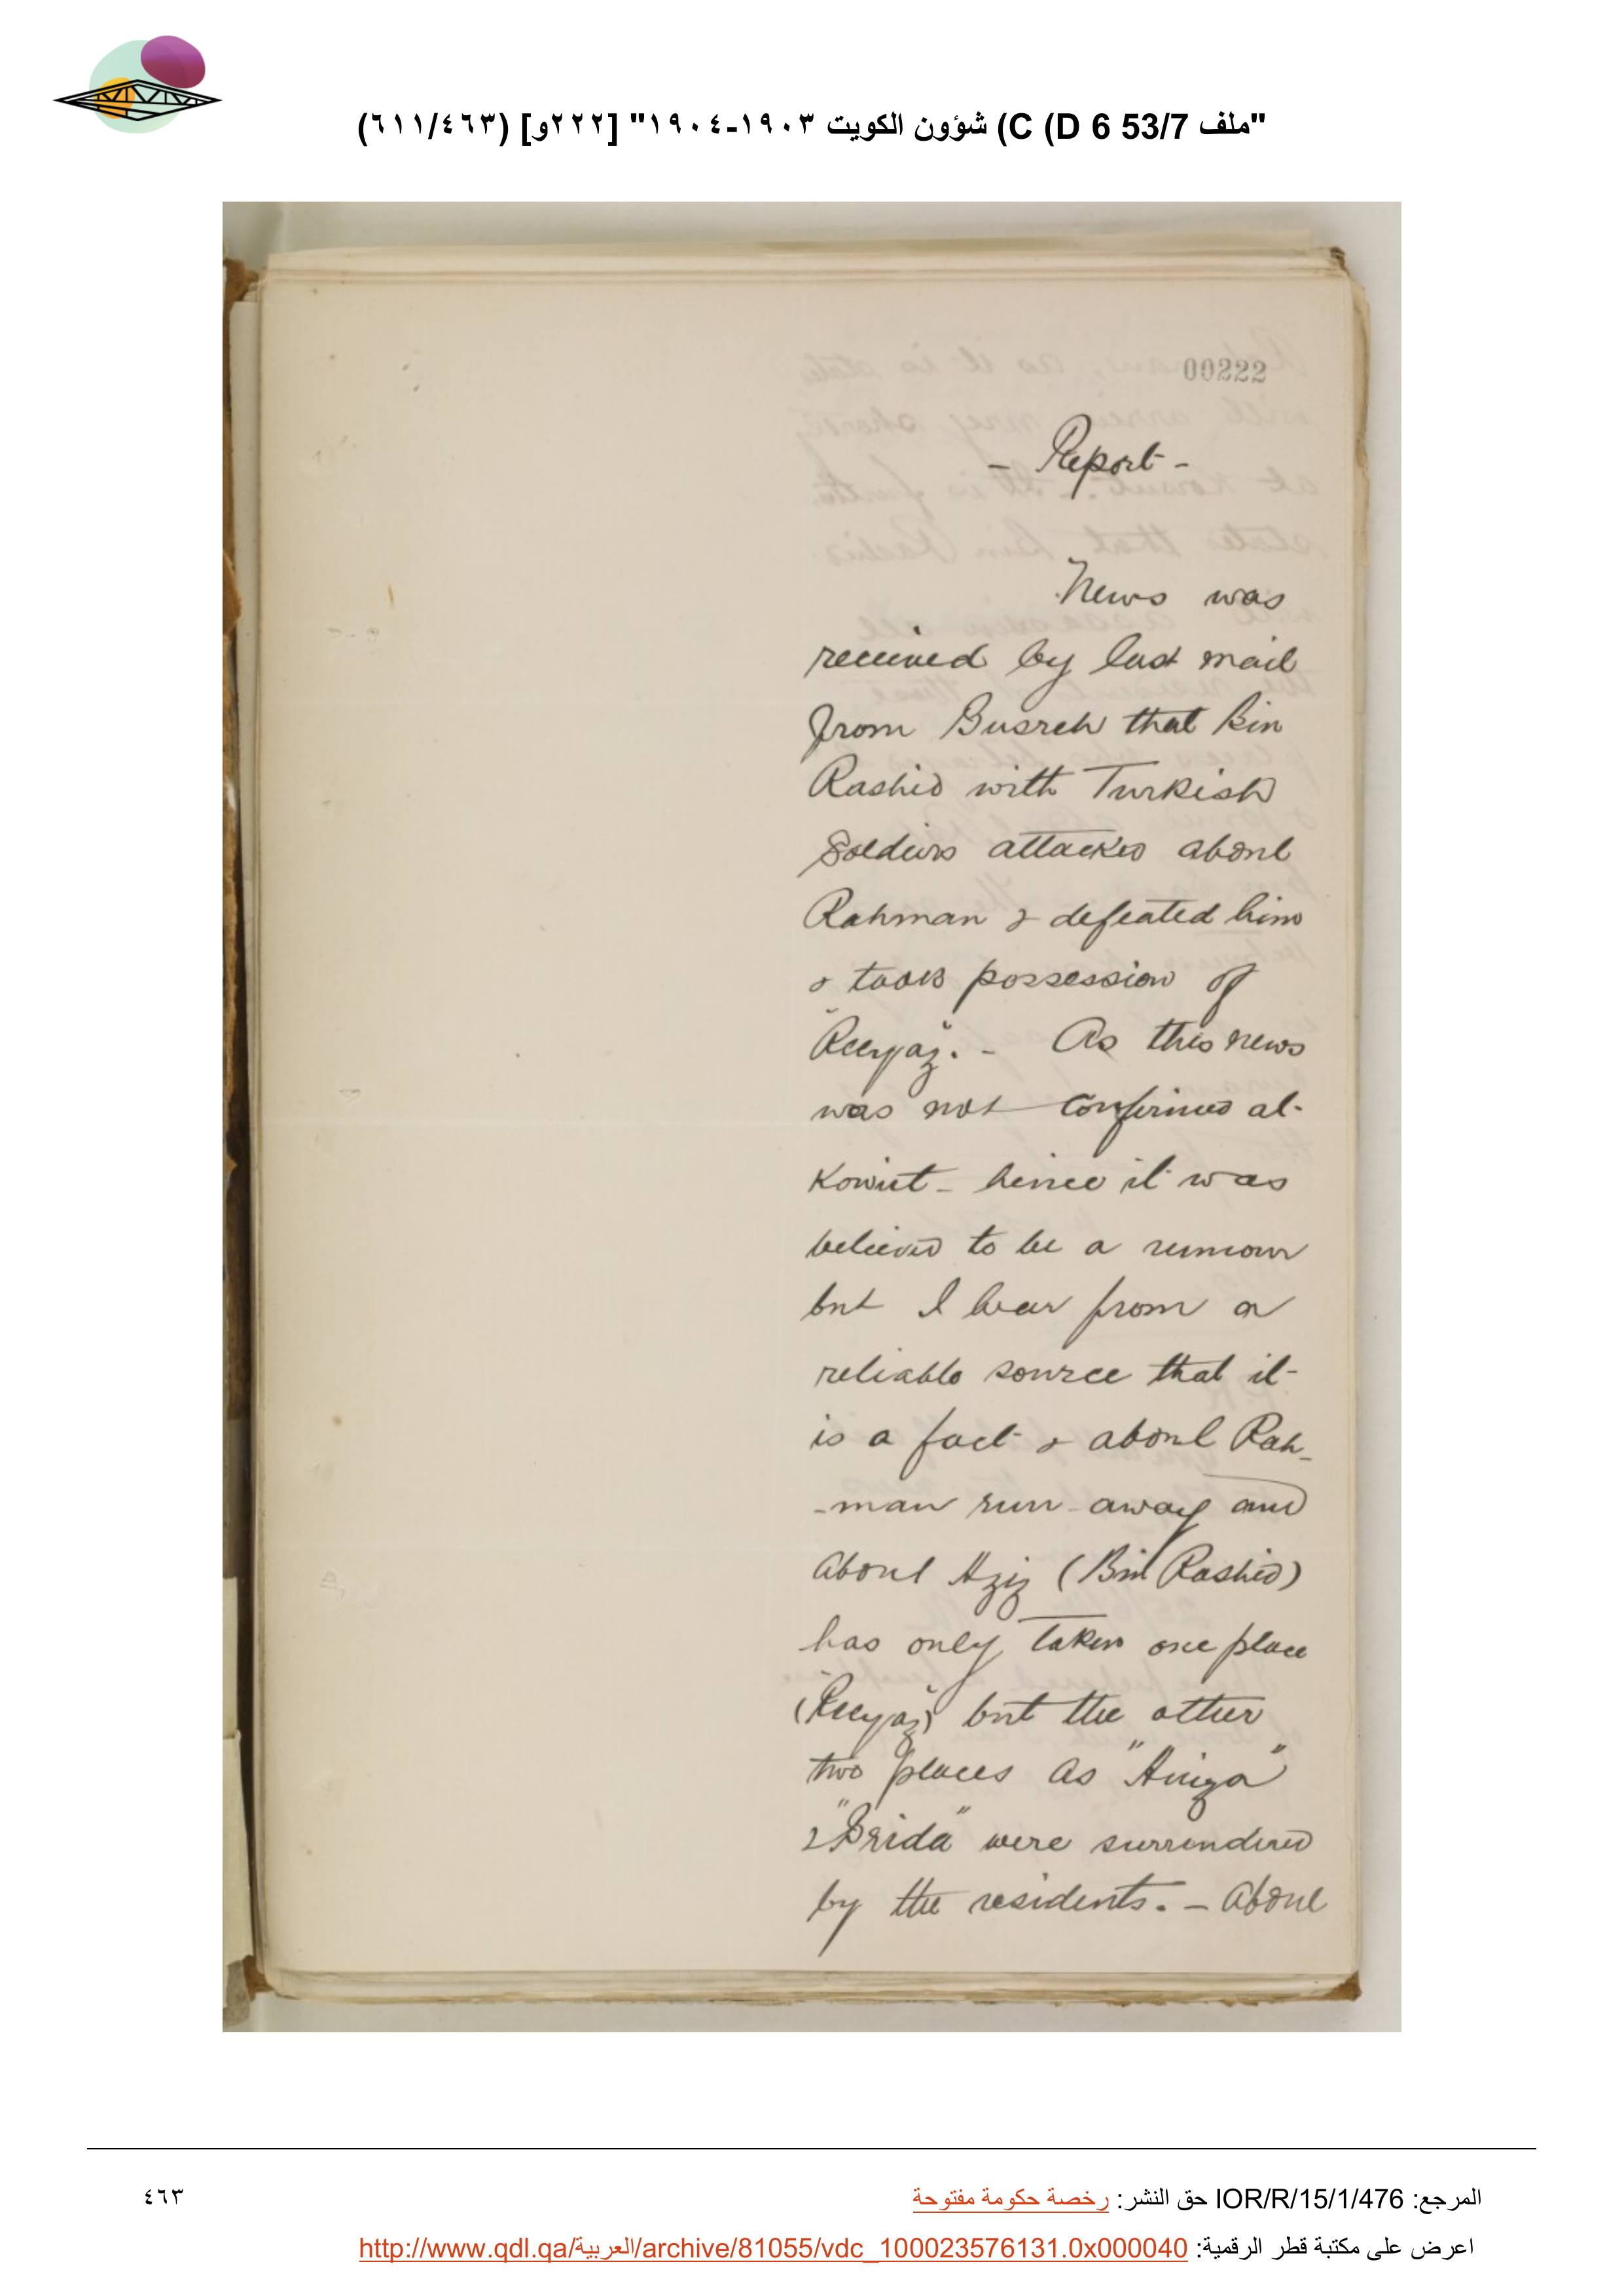 "ملف 53/7 D 6) C) شؤون الكويت ١٩٠٣-١٩٠٤" [٢٢٢و] (٦١١/٤٦٣)
00222
- Report -
News was
received by last mail
from Busreh that Bin
Rashid with Turkish
Soldiers attacked abdul
Rahman & defeated him
& took possession of
"Reeyaz". - As this news
was not confirmed at
Koweit - hence it was
believed to be a rumour
but I hear from a
reliable source that it
is a fact & abdul Rah-
-man run away and
abdul Aziz (Bin Rashid)
has only taken one place
("Reeyaz") but the other
two places as "Aniza"
& "Brida" were surrendered
by the residents. - abdul
المرجع: IOR/R/15/1/476 حق النشر: رخصة حكومة مفتوحة
٤٦٣
اعرض على مكتبة قطر الرقمية: http://www.qdl.qa/العربية/archive/81055/vdc_100023576131.0x000040